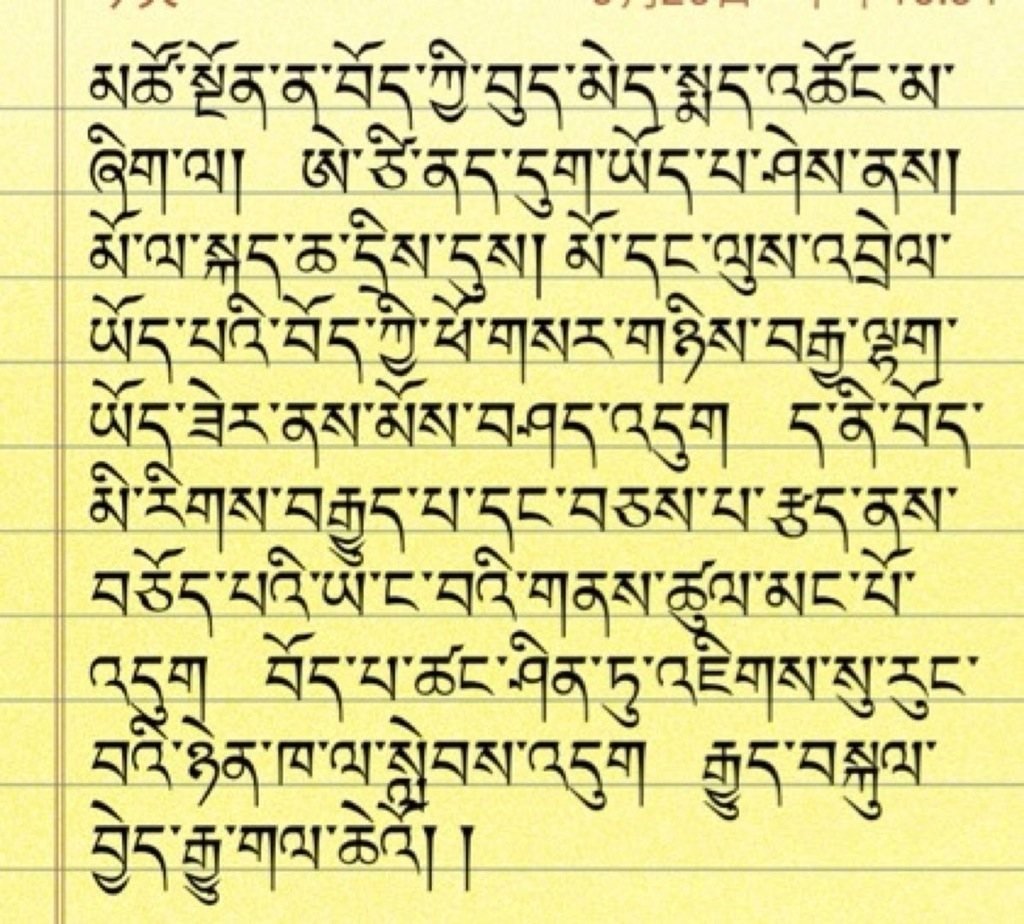 མཚོ་སྔོན་ན་བོད་ཀྱི་བུད་མེད་སྨད་འཚོང་མ་
ཞིག་ལ། ཨེ་ཙི་ནད་དུག་ཡོད་པ་ཤེས་ནས།
མོ་ལ་སྐད་ཆ་དྲིས་དུས། མོ་དང་ལུས་འབྲེལ་
ཡོད་པའི་བོད་ཀྱི་ཕོ་གསར་གཉིས་བརྒྱ་ལྷག་
ཡོད་ཟེར་ནས་མོས་བཤད་འདུག ད་ནི་བོད་
མི་རིགས་བརྒྱུད་པ་དང་བཅས་པ་རྩད་ནས་
བཅོད་པའི་ཡ་ང་བའི་གནས་ཚུལ་མང་པོ་
འདུག བོད་པ་ཚང་ཤིན་ཏུ་འཇིགས་སུ་རུང་
བའི་ཉེན་ཁ་ལ་སླེབས་འདུག རྒྱུད་བསྐུལ་
བྱེད་རྒྱུ་གལ་ཆེའོ། །